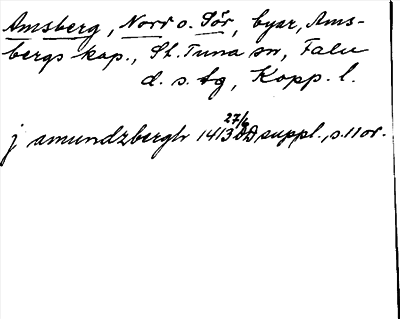 Amsberg, Norr o. Sör, byar, Ams-
bergs kap., St. Tuna sn, Falu
d. s. tg, Kopp. l.
27/6
j amundzbergh 1413 DD suppl., s. 11 or.